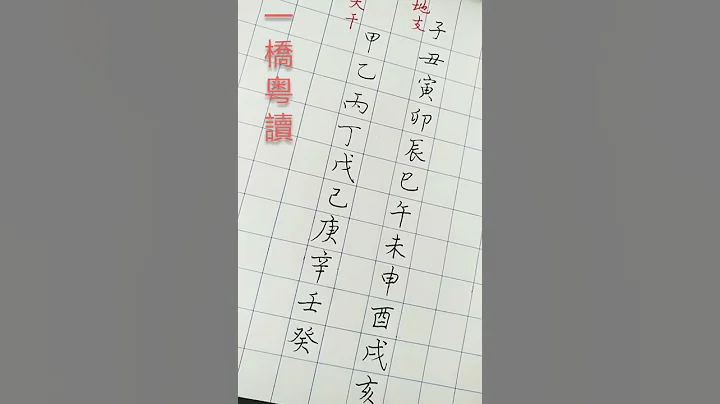 地支
子丑寅卯辰巳午未申酉戌亥
天干
甲乙丙丁戊己庚辛壬癸
一橋粵讀